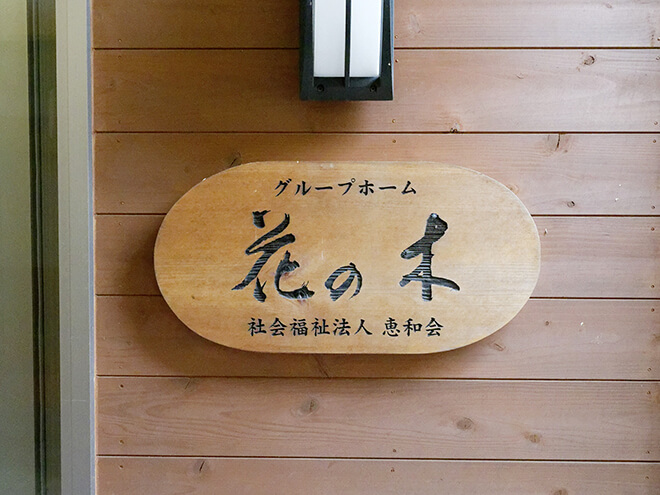 グループホーム
花の木
社会福祉法人 恵和会